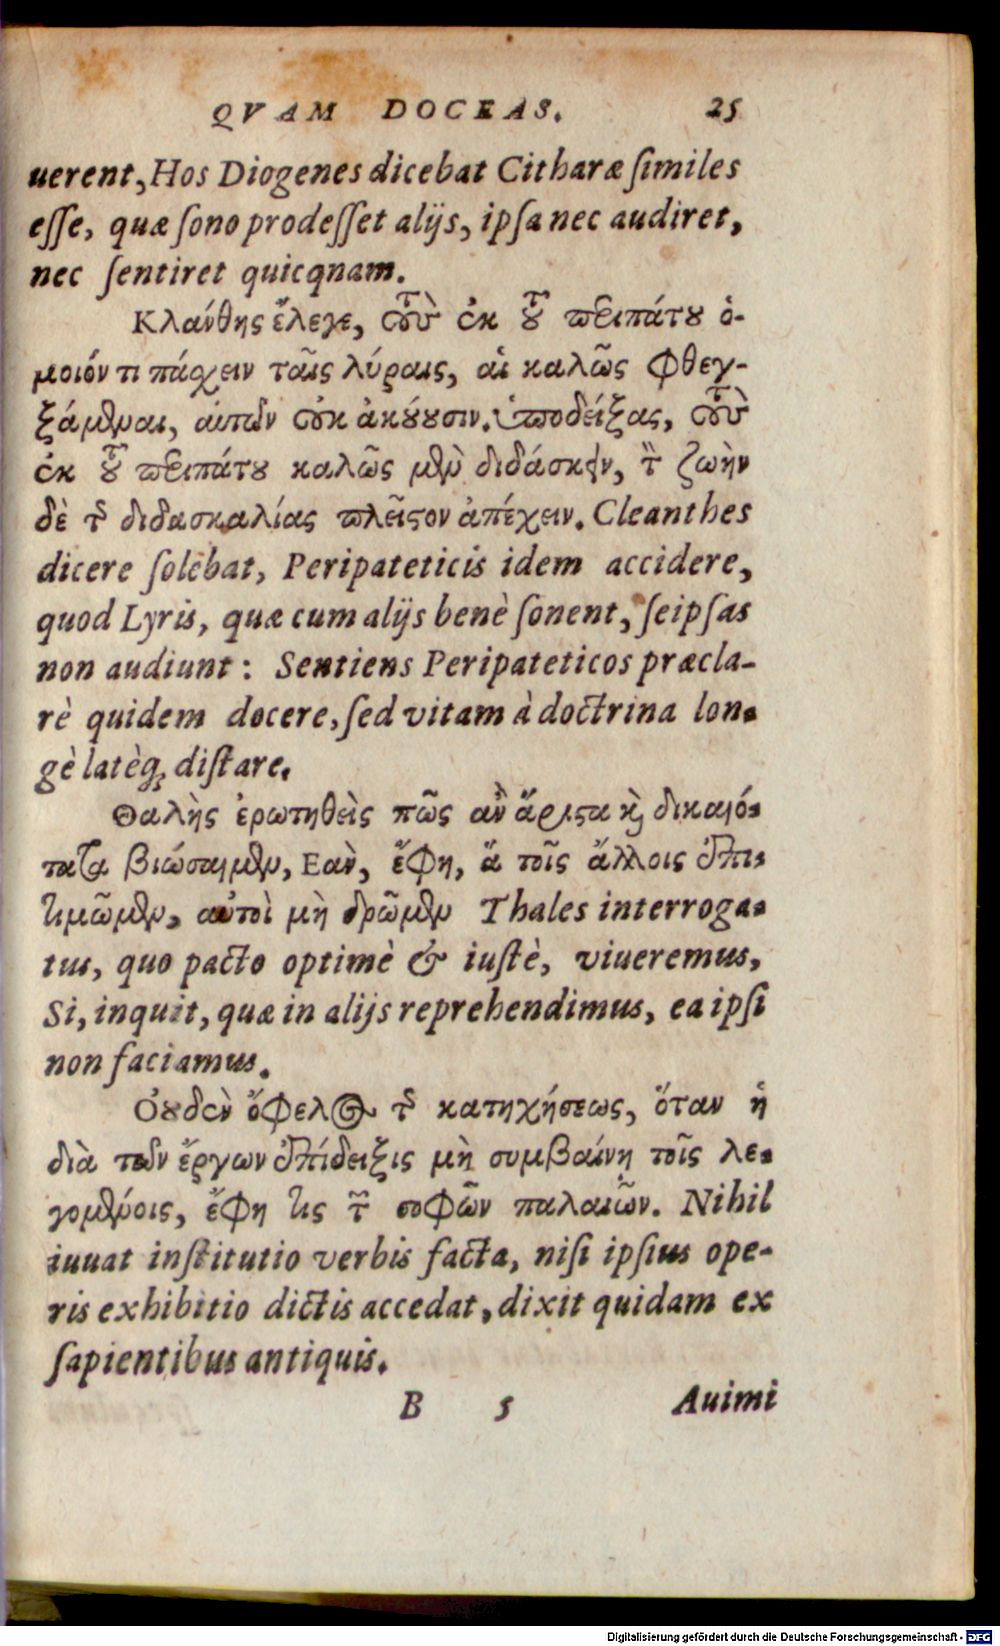 QVAM DOCEAS. 25
uerent, Hos Diogenes dicebat Citharæ ſimiles
eſſe, quæ ſono prodeſſet alijs, ipſa nec audiret,
nec ſentiret quicqnam.
Κλεάνθης ἔλεγε, τοὺς ἐκ τοῦ περιπάτου ὅ-
μοιόν τι πάχειν ταῖς λύραις, αἱ καλῶς φθεγ-
ξάμεναι, αὑτῶν οὐκ ἀκούουσιν. ὑποδείξας, τοὺς
ἐκ τοῦ περιπάτου καλῶς μὲν διδάσκειν, τὴν ζωὴν
δὲ τῆς διδασκαλίας πλεῖστον ἀπέχειν. Cleanthes
dicere ſolebat, Peripateticis idem accidere,
quod Lyris, quæ cum alijs benè ſonent, ſeipſas
non audiunt: Sentiens Peripateticos præcla-
rè quidem docere, ſed vitam à doctrina lon-
gè latèq; diſtare.
Θαλὴς ἐρωτηθεὶς πῶς ἂν ἄριστα καὶ δικαιό-
τατα βιώσαιμεν, Εαν, ἔφη, ἃ τοῖς ἄλλοις ἐπι-
τιμῶμεν, αὐτοὶ μὴ δρῶμεν Thales interroga-
tus, quo pacto optimè & iuſtè, viueremus,
Si, inquit, quæ in alijs reprehendimus, ea ipſi
non faciamus.
Οὐδὲν ὄφελος τῆς κατηχήσεως, ὅταν ἡ
διὰ τῶν ἔργων ἐπίδειξις μὴ συμβαίνη τοῖς λε-
γομένοις, ἔφη τις τῶν σοφῶν παλαιῶν. Nihil
iuuat inſtitutio verbis facta, niſi ipſius ope-
ris exhibitio dictis accedat, dixit quidam ex
ſapientibus antiquis.
B 5 Auimi
Digitalisierung gefördert durch die Deutsche Forschungsgemeinschaft - DFG